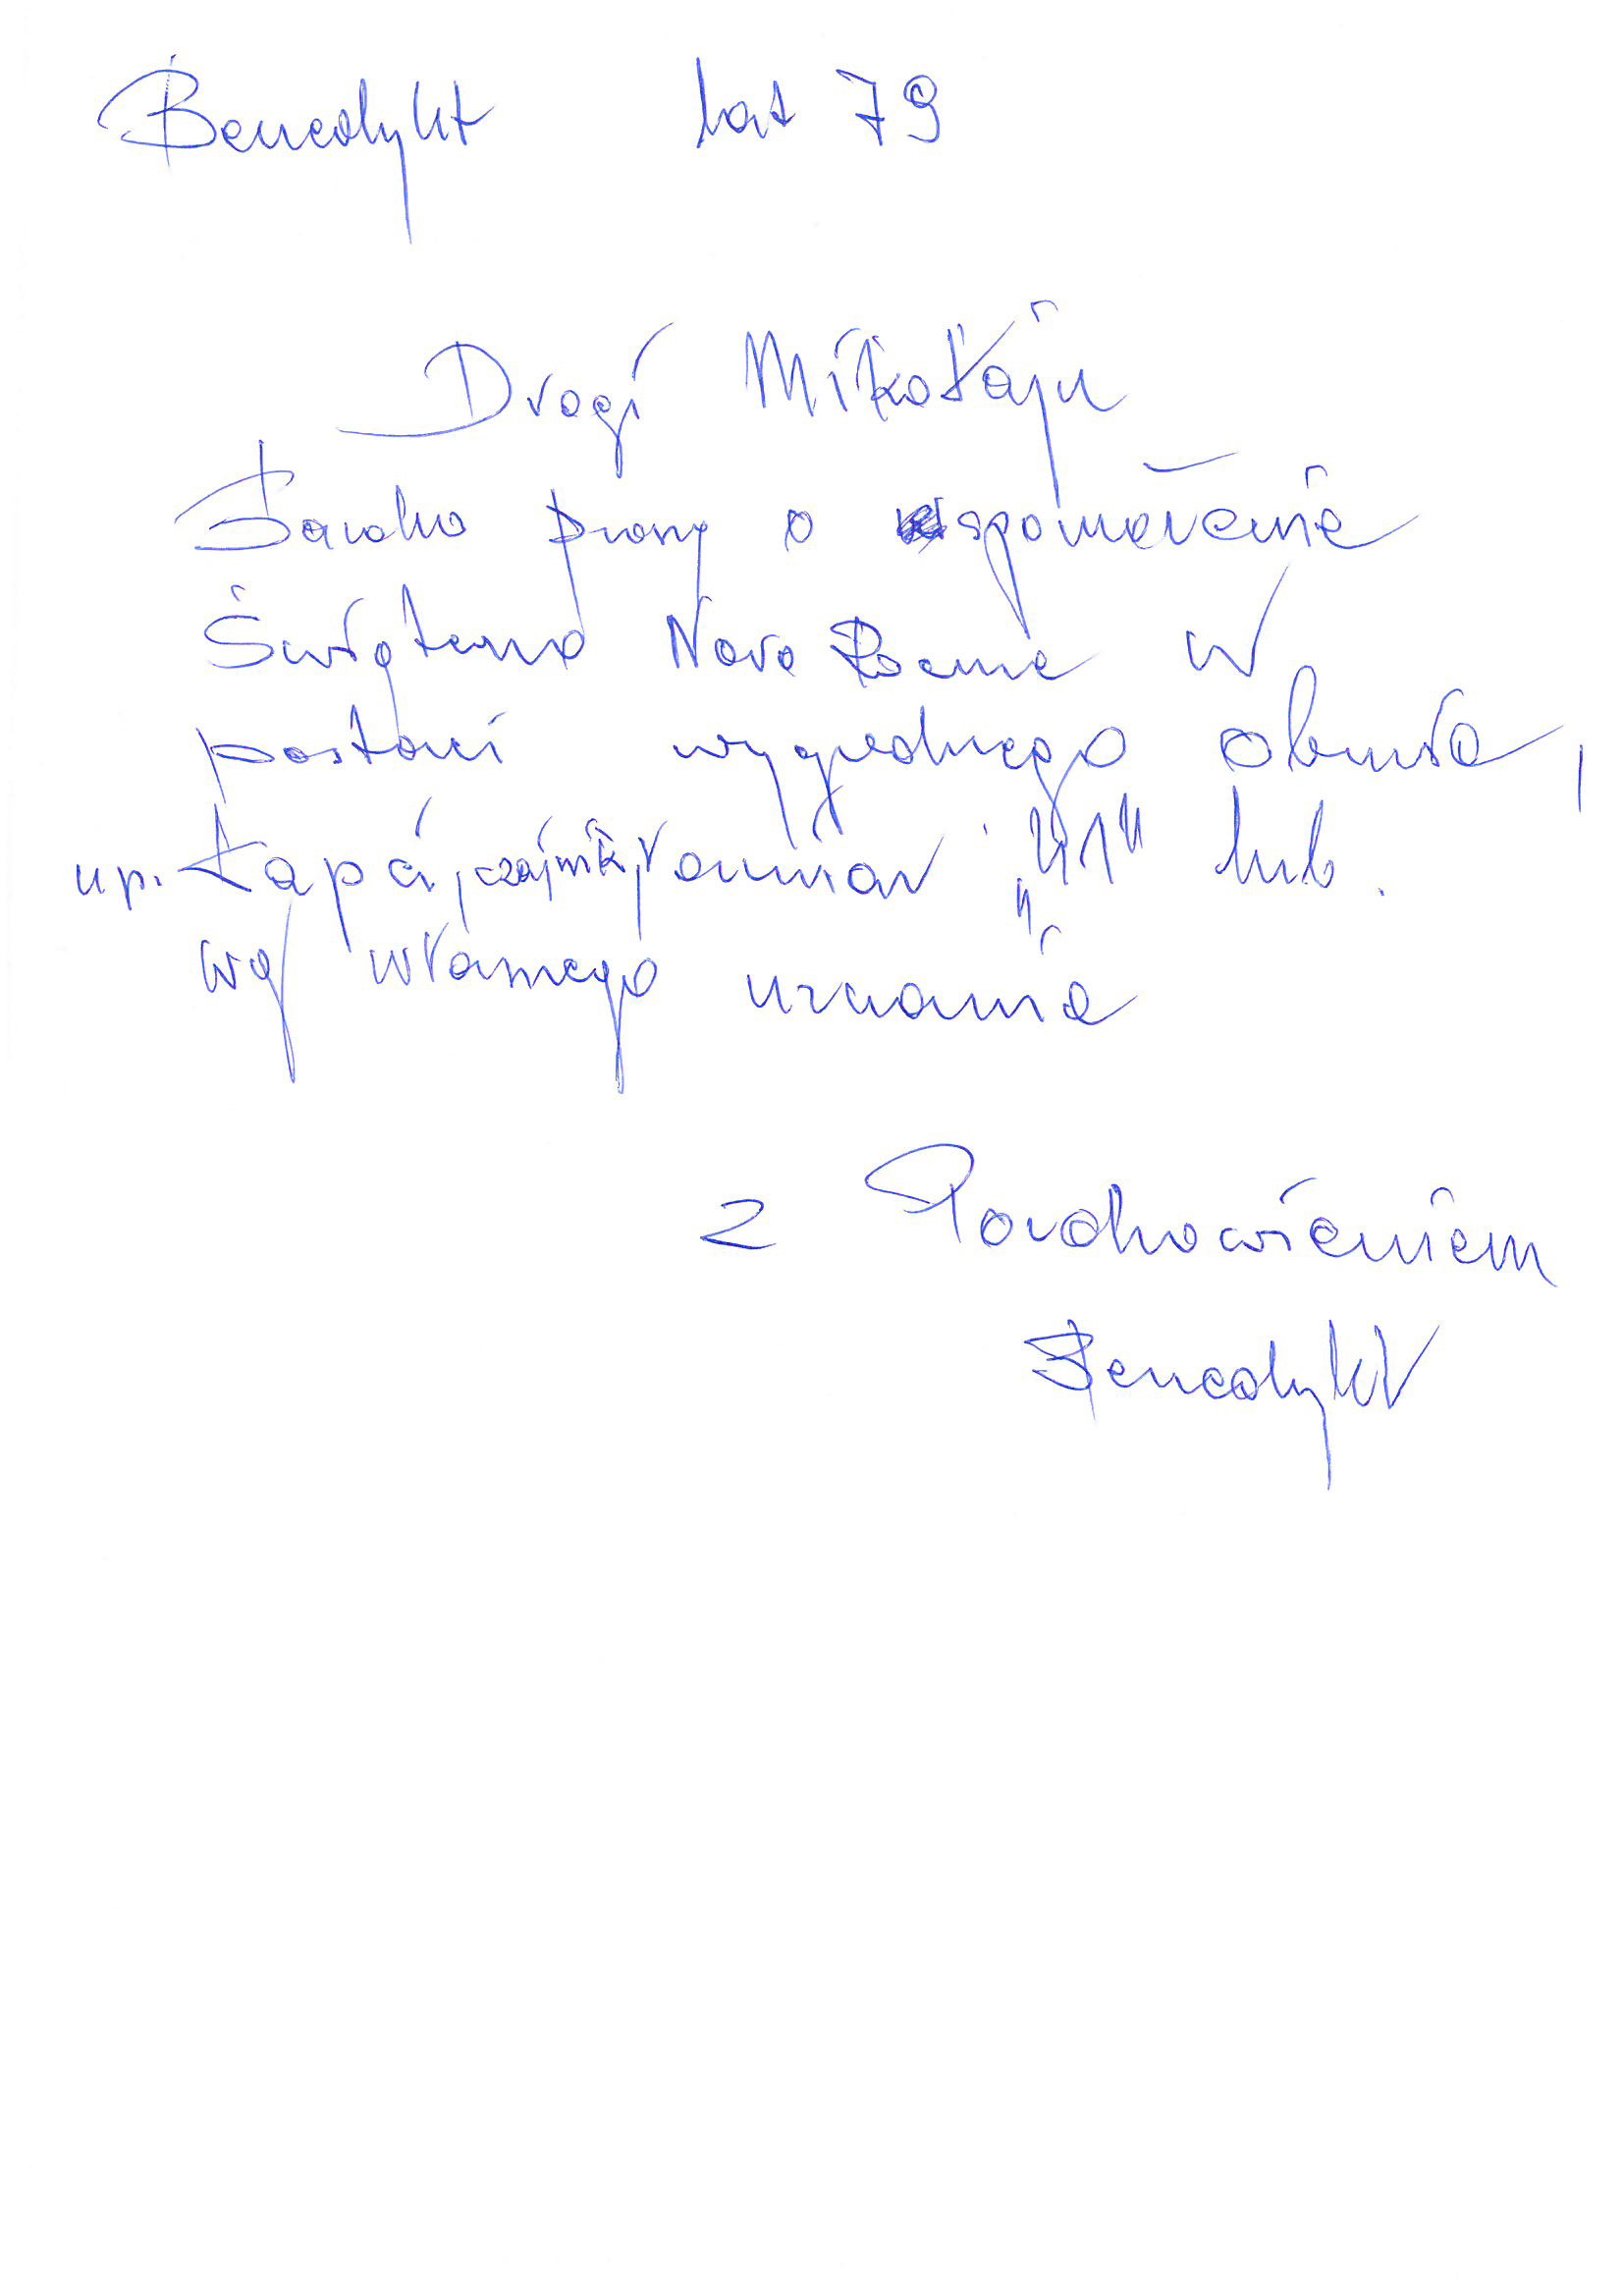 Benedykt lat 79
Drogi Mikołaju
Bardzo proszę o wspomożenie
Świąteczno Noworoczne w
postaci wygodnego obuwia,
np. łapci, rozmiar „41" lub
wg własnego uznania
Z Pozdrowieniem
Benedykt